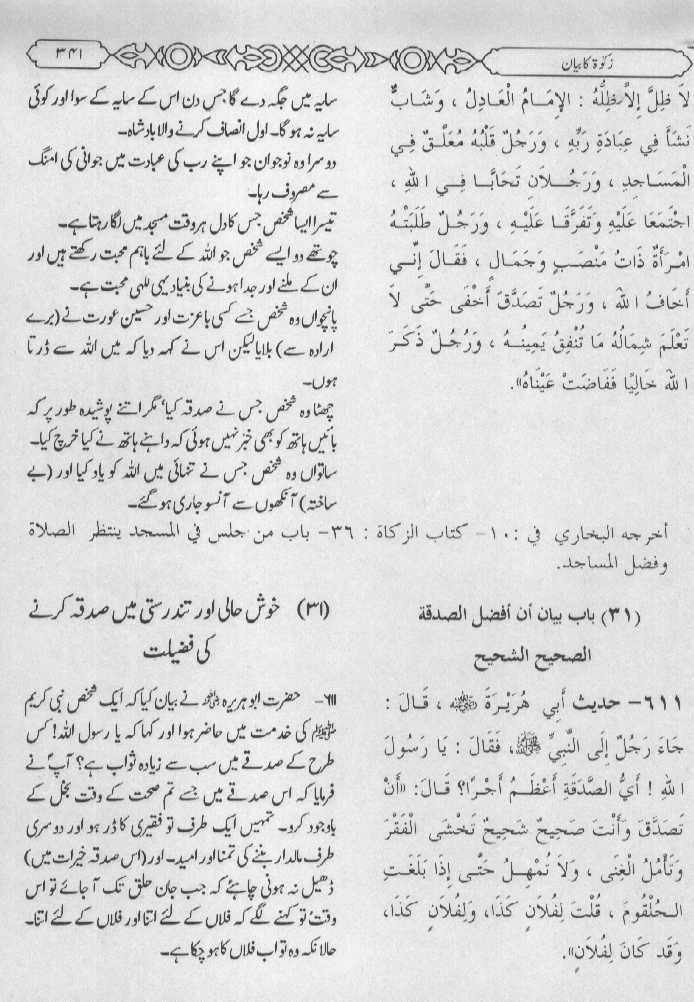 زکوٰۃ کا بیان
۳۴۱
لاَ ظِلَّ إِلاَّ ظِلُّهُ : الإِمَامُ الْعَادِلُ ، وَشَابٌّ
نَشَأَ فِي عِبَادَةِ رَبِّهِ ، وَرَجُلٌ قَلْبُهُ مُعَلَّقٌ فِي
الْمَسَاجِدِ ، وَرَجُلاَنِ تَحَابَّا فِي اللهِ ،
اجْتَمَعَا عَلَيْهِ وَتَفَرَّقَا عَلَيْهِ ، وَرَجُلٌ طَلَبَتْهُ
امْرَأَةٌ ذَاتُ مَنْصَبٍ وَجَمَالٍ ، فَقَالَ إِنِّي
أَخَافُ اللهَ ، وَرَجُلٌ تَصَدَّقَ أَخْفَى حَتَّى لاَ
تَعْلَمَ شِمَالُهُ مَا تُنْفِقُ يَمِينُهُ ، وَرَجُلٌ ذَكَرَ
اللهَ خَالِيًا فَفَاضَتْ عَيْنَاهُ».
سایہ میں جگہ دے گا جس دن اس کے سایہ کے سوا اور کوئی
سایہ نہ ہو گا۔ اول انصاف کرنے والا بادشاہ۔
دوسرا وہ نوجوان جو اپنے رب کی عبادت میں جوانی کی امنگ
سے مصروف رہا۔
تیسرا ایسا شخص جس کا دل ہر وقت مسجد میں لگا رہتا ہے۔
چوتھے دو ایسے شخص جو اللہ کے لئے باہم محبت رکھتے ہیں اور
ان کے ملنے اور جدا ہونے کی بنیاد یہی للہی محبت ہے۔
پانچواں وہ شخص جسے کسی باعزت اور حسین عورت نے (برے
ارادہ سے) بلایا لیکن اس نے کہہ دیا کہ میں اللہ سے ڈرتا
ہوں۔
چھٹا وہ شخص جس نے صدقہ کیا' مگر اتنے پوشیدہ طور پر کہ
بائیں ہاتھ کو بھی خبر نہیں ہوئی کہ داہنے ہاتھ نے کیا خرچ کیا۔
ساتواں وہ شخص جس نے تنہائی میں اللہ کو یاد کیا اور (بے
ساختہ) آنکھوں سے آنسو جاری ہو گئے۔
أخرجه البخاري في : ١٠- كتاب الزكاة : ٣٦- باب من جلس في المسجد ينتظر الصلاة
وفضل المساجد.
(٣١) باب بيان أن أفضل الصدقة
الصحيح الشحيح
(۳۱) خوش حالی اور تندرستی میں صدقہ کرنے
کی فضیلت
٦١١- حديث أَبِي هُرَيْرَةَ رضي الله عنه ، قَالَ :
جَاءَ رَجُلٌ إِلَى النَّبِيِّ ﷺ، فَقَالَ : يَا رَسُولَ
اللهِ ! أَيُّ الصَّدَقَةِ أَعْظَمُ أَجْرًا؟ قَالَ: «أَنْ
تَصَدَّقَ وَأَنْتَ صَحِيحٌ شَحِيحٌ تَخْشَى الْفَقْرَ
وَتَأْمُلُ الْغِنَى ، وَلاَ تُمْهِلُ حَتَّى إِذَا بَلَغَتِ
الحُلْقُومَ ، قُلْتَ لِفُلاَنٍ كَذَا، وَلِفُلاَنٍ كَذَا،
وَقَد كَانَ لِفُلاَنٍ».
۶۱۱- حضرت ابو ہریرہ رضی اللہ عنہ نے بیان کیا کہ ایک شخص نبی کریم
ﷺ کی خدمت میں حاضر ہوا اور کہا کہ یا رسول اللہ! کس
طرح کے صدقے میں سب سے زیادہ ثواب ہے؟ آپؐ نے
فرمایا کہ اس صدقے میں جسے تم صحت کے وقت بخل کے
باوجود کرو۔ تمہیں ایک طرف تو فقیری کا ڈر ہو اور دوسری
طرف مالدار بننے کی تمنا اور امید۔ اور (اس صدقہ خیرات میں)
ڈھیل نہ ہونی چاہئے کہ جب جان حلق تک آ جائے تو اس
وقت تو کہنے لگے کہ فلاں کے لئے اتنا اور فلاں کے لئے اتنا۔
حالانکہ وہ تو اب فلاں کا ہو چکا ہے۔